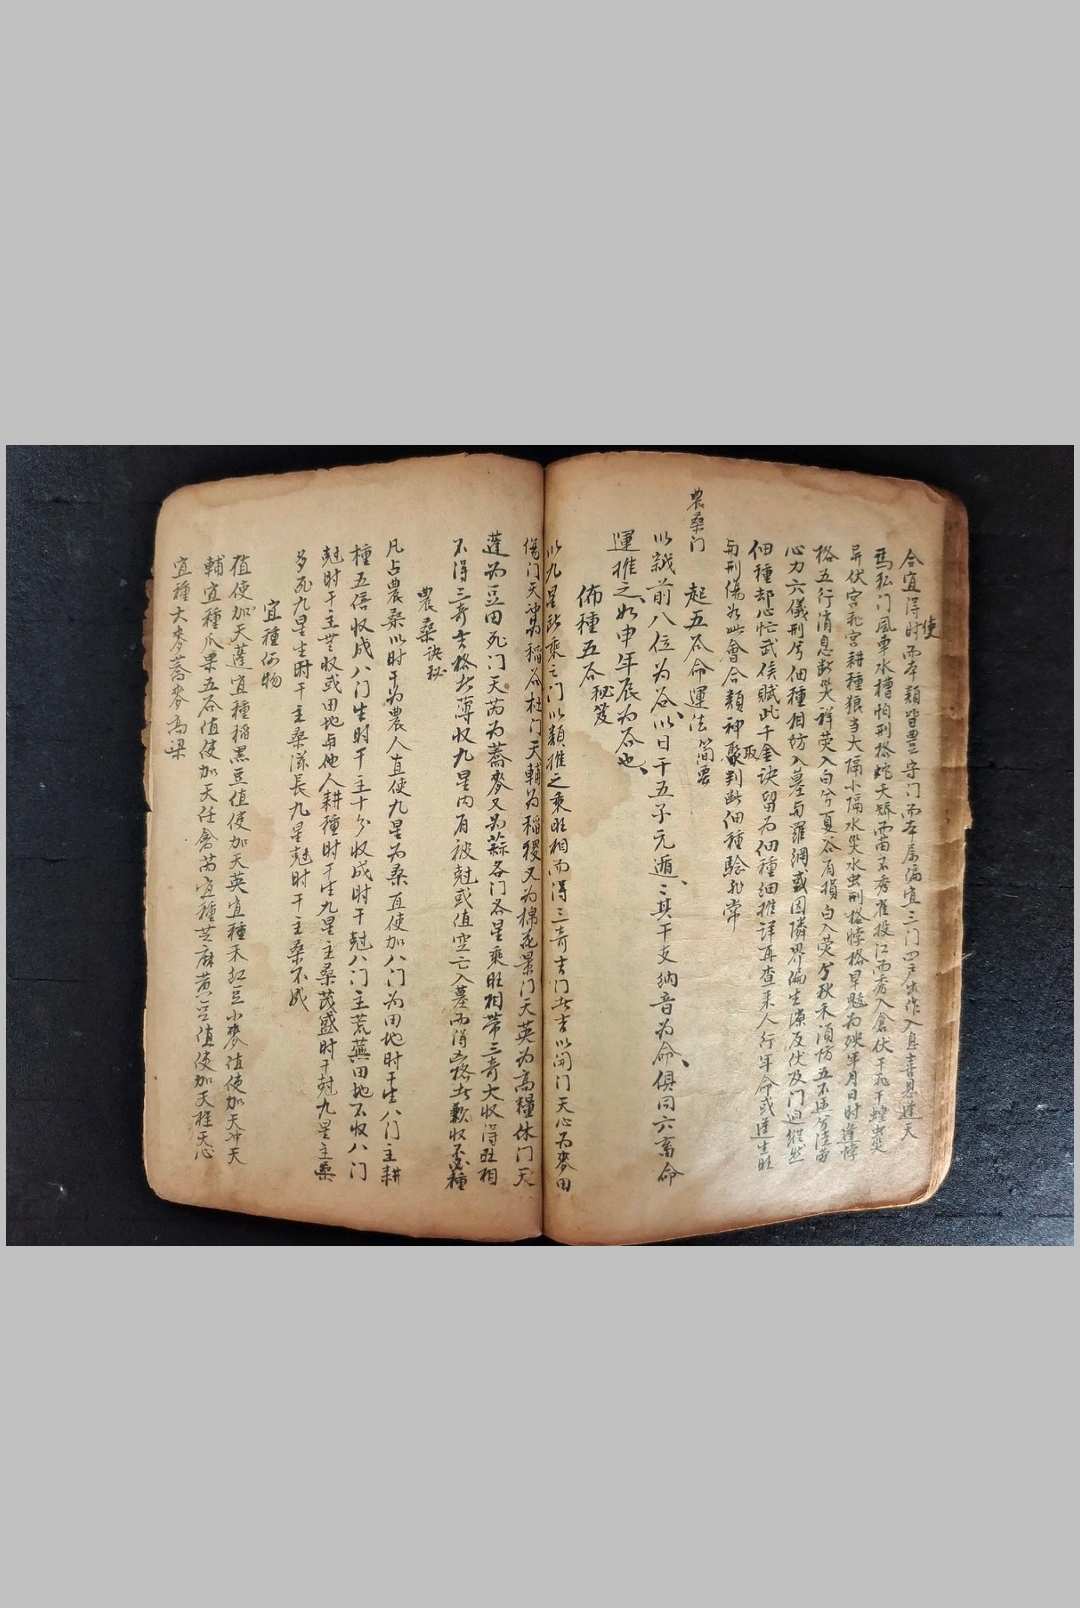 合宜得时而本類皆豊守门而本属偏宜三门四户出作入息喜恩逢天
使
馬私门風車水槽怕刑格蛇夭矯而苗不秀雀投江而秀入倉伏干飛干蝗虫災
异伏宫飛宫耕種狼当大隔小隔水災水虫刑格悖格旱魃为殃年月日时逢悖
格五行消息断災祥荧入白兮夏谷有損白入荧兮秋禾須防五不遇兮徒劳
心力六儀刑兮佃種相妨入墓与羅網或因隣界偏生源反伏及门迫縱然
佃種却心忙武侯賦此千金诀留为佃種細推详再查来人行年命或逢生旺
与刑傷如此會合類神取判断佃種驗非常
農桑门
起五谷命運法简要
以歲前八位为谷、以日干五子元遁、三其干支纳音为命、俱同六畜命
運推之、如申年辰为谷也、
佈種五谷秘笈
以九星所乘之门以類推之乘旺相而得三奇吉门此吉以開门天心为麥田
傷门天冲为稲谷杜门天輔为稲稷又为棉花景门天英为高糧休门天
蓬为豆田死门天芮为蕎麥又为蒜各门各星乘旺相带三奇大收得旺相
不得三奇吉格此薄收九星内有被尅或值空亡入墓而得此歉收不種
農桑诀秘
凡占農桑以时干为農人直使九星为桑直使加八门为田地时干生八门主耕
種五倍收成八门生时干主十分收成时干尅八门主荒蕪田地不收八门
尅时干主無收或田地与他人耕種时干生九星主桑茂盛时干尅九星主桑
多死九星生时干主桑條長九星尅时干主桑不成
宜種何物
值使加天蓬宜種稲黑豆值使加天英宜種禾紅豆小麥值使加天冲天
輔宜種瓜果五谷值使加天任禽芮宜種芝麻黄豆值使加天柱天心
宜種大麥蕎麥高梁